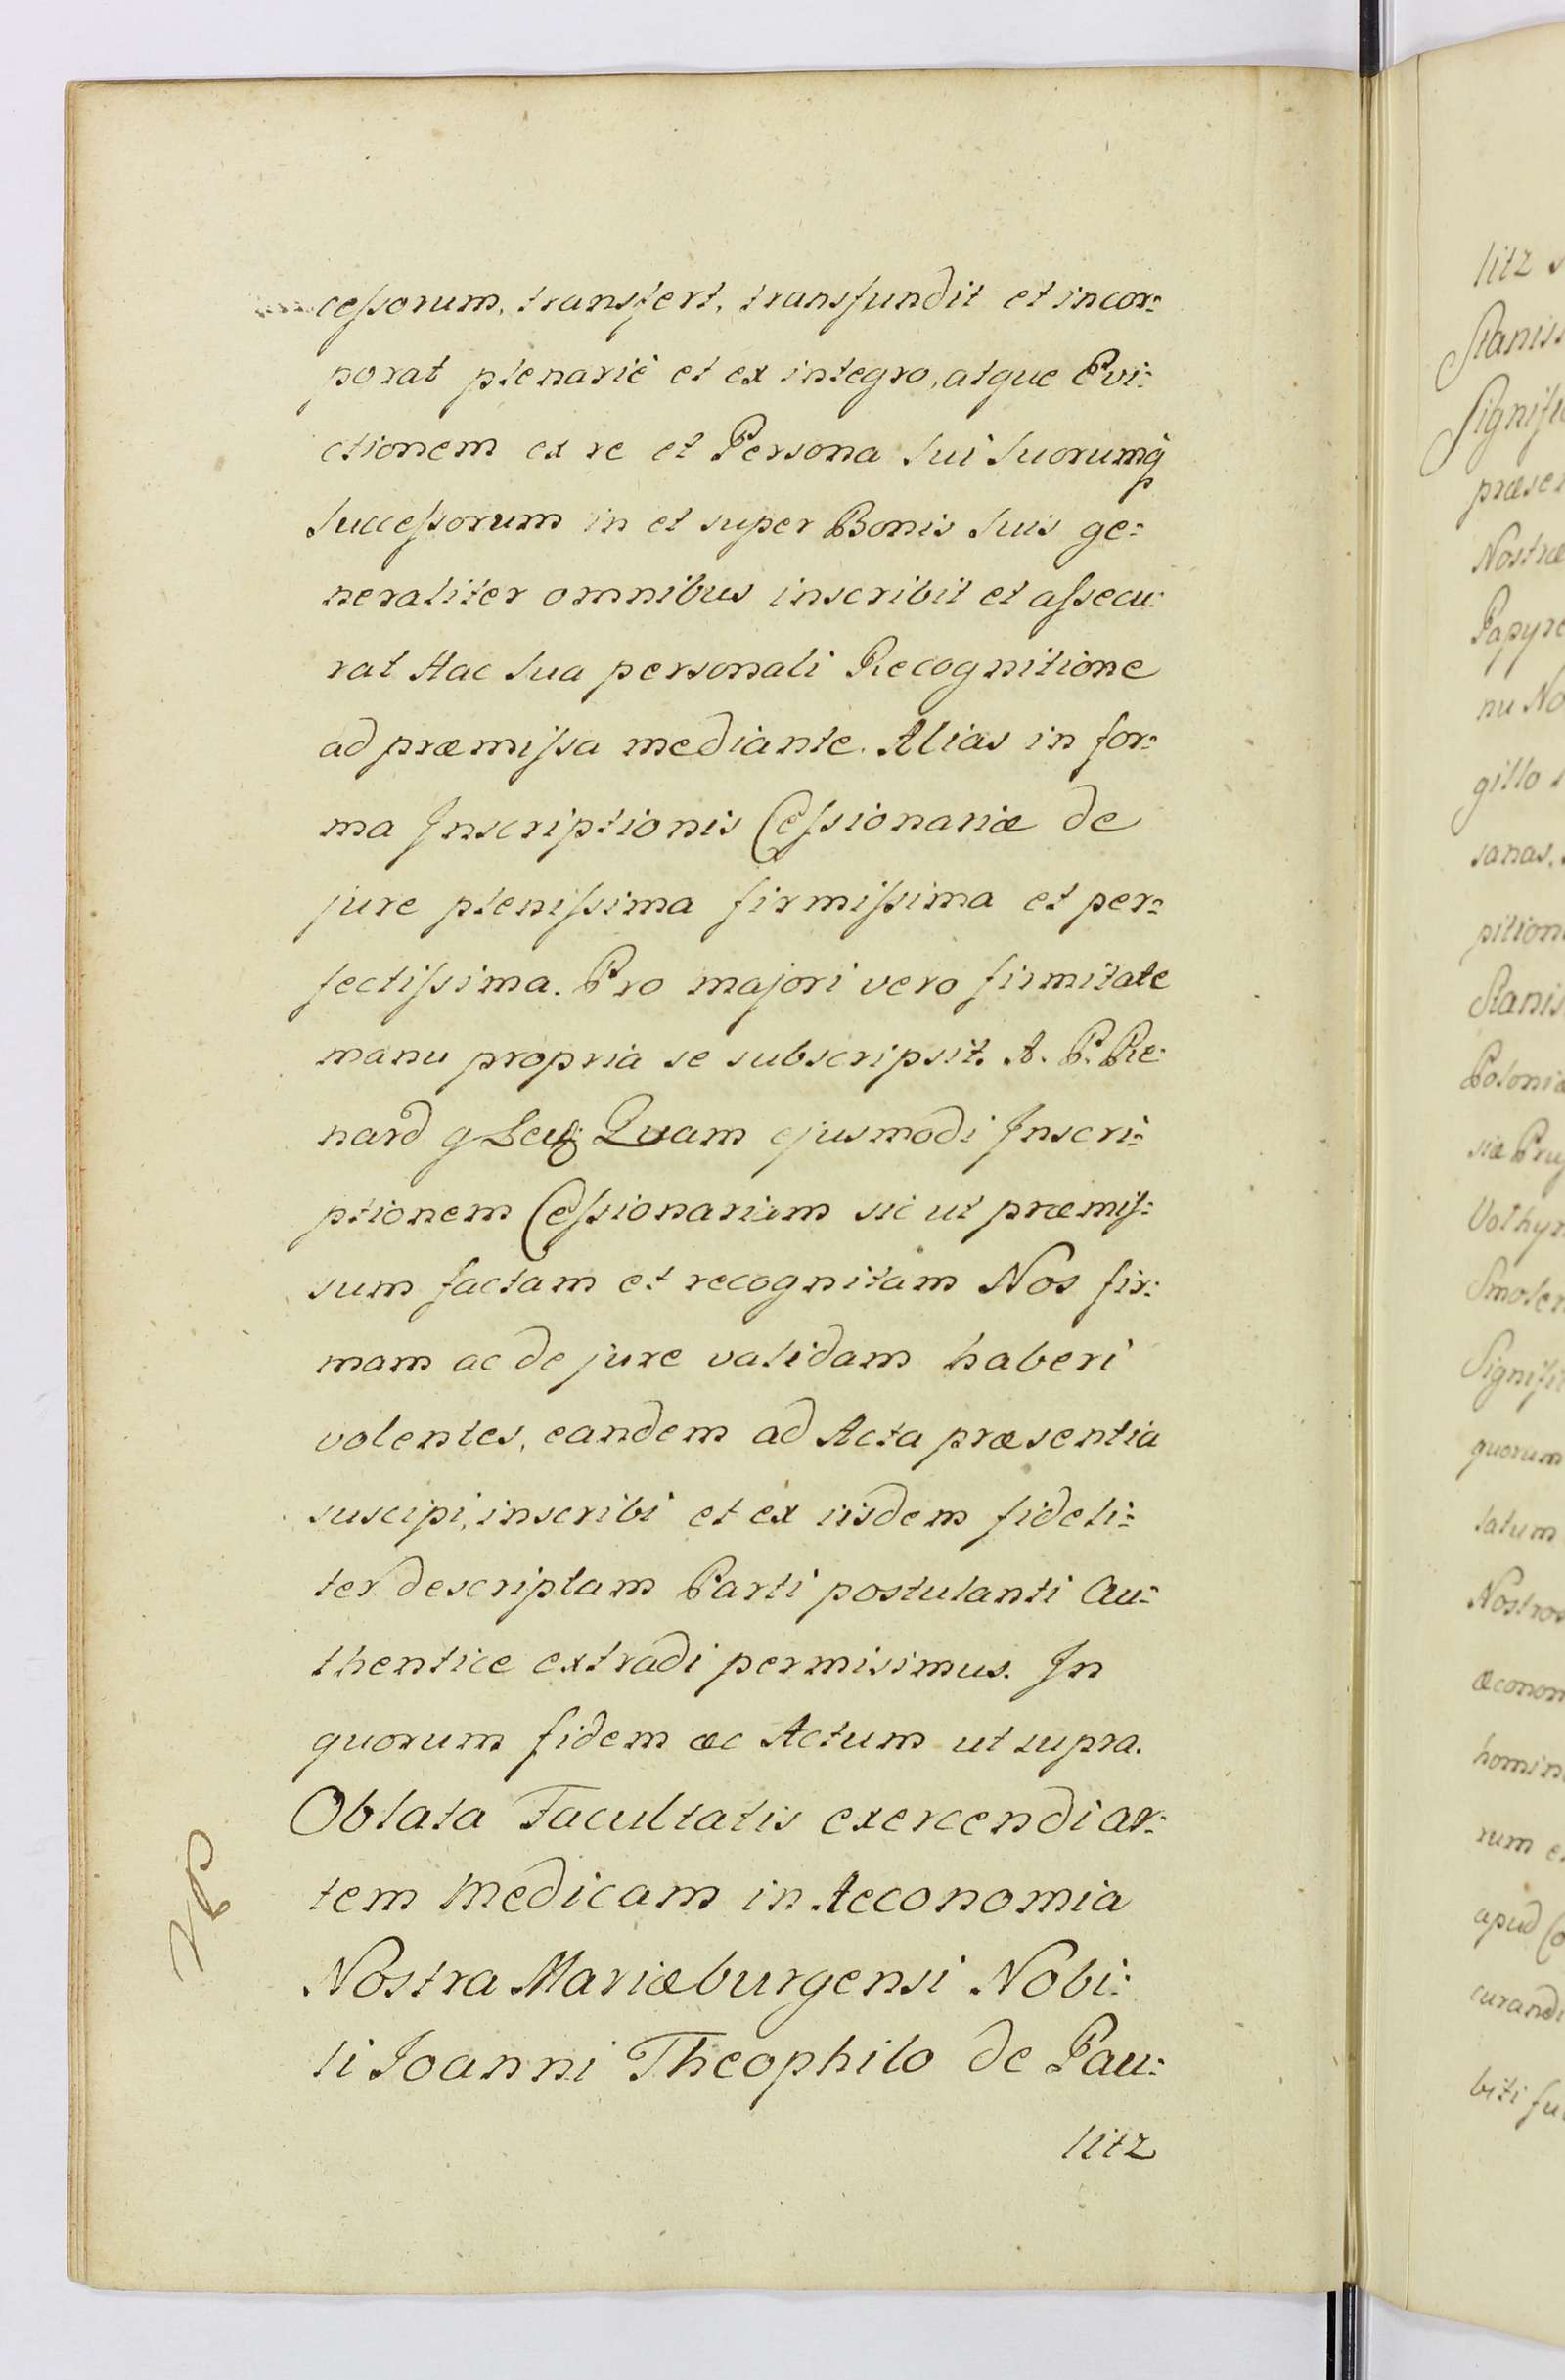 cessorum, transfert, transfundit et incor=
porat plenariè et ex integro, atque Evi=
ctionem ex re et Persona sui suorumq
successorum in et super Bonis suis ge=
neraliter omnibus inscribit et assecu=
rat Hac sua personali Recognitione
ad præmissa mediante. Alias in for=
ma Inscriptionis Cessionariæ de
jure plenissima firmissima et per=
fectissima. Pro majori vero firmitate
manu propria se subscripsit. A. P. Re=
nard Quam ejusmodi Inscri=
ptionem Cessionariam sic ut præmis=
sum factam et recognitam Nos fir=
mam ac de jure validam haberi
volentes, eandem ad Acta præsentia
suscipi, inscribi et ex iisdem fideli=
ter descriptam Parti postulanti au=
thentice extradi permisimus. In
quorum fidem ac Actum ut supra.
Oblata Facultatis exercendi ar=
tem Medicam in Aeconomia
Nostra Mariæburgensi Nobi=
li Joanni Theophilo de Pau=
litz
litz
Stanis
Signifi
præsen
Nostræ
Papyre
nu No
gillo
sanas.
pition
Stanis
Poloniæ
siæ Prus
Volhyn
Smolen
Signifi
quorum
tatum
Nostros
æconom
homin
rum e
apud Co
curandi
biti fu